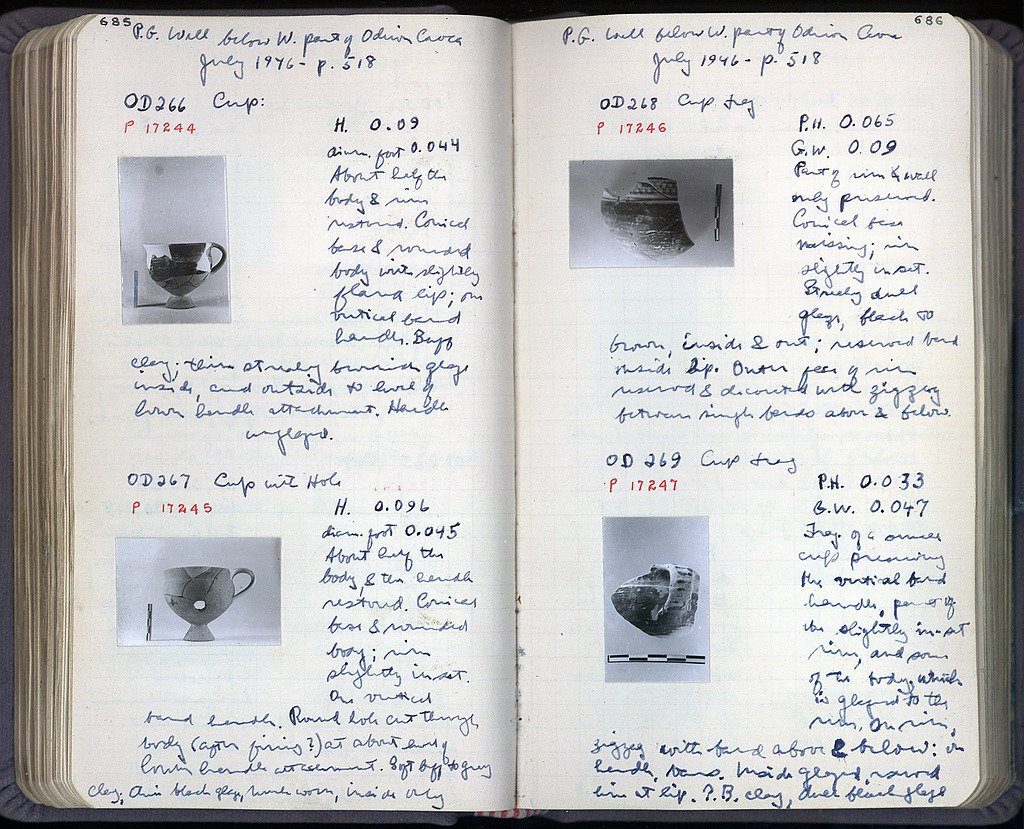 685
P.G. Well below W. part of Odeion Cavea
July 1946 - p. 518
OD266 Cup:
P 17244
H. 0.09
diam. foot 0.044
About half the
body & rim
restored. Conical
base & rounded
body with slightly
flared lip; one
vertical band
handle. Buff
clay; thin streaky brownish glaze
inside, and outside to level of
lower handle attachment. Handle
unglazed.
OD267 Cup with Hole
P 17245
H. 0.096
diam. foot 0.045
About half the
body, & the handle
restored. Conical
base & rounded
body; rim
slightly inset.
One vertical
band handle. Round hole cut through
body (after firing?) at about level of
lower handle attachment. Soft buff to grey
clay; thin black glaze, much worn, inside only
686
P.G. Well below W. part of Odeion Cavea
July 1946 - p. 518
OD268 Cup frag
P 17246
P.H. 0.065
G.W. 0.09
Part of rim & wall
only preserved.
Conical base
missing; rim
slightly inset.
Streaky dull
glaze, black to
brown, inside & out; reserved band
inside lip. Outer face of rim
reserved & decorated with zigzag
between single bands above & below.
OD 269 Cup frag
P 17247
P.H. 0.033
G.W. 0.047
Frag. of a small
cup preserving
the vertical band
handle, part of
the slightly in-set
rim, and some
of the body, which
is glazed to the
rim. On rim,
zigzag with band above & below: on
handle, bars. Inside glazed, reserved
line at lip. P.B. clay, dull black glaze